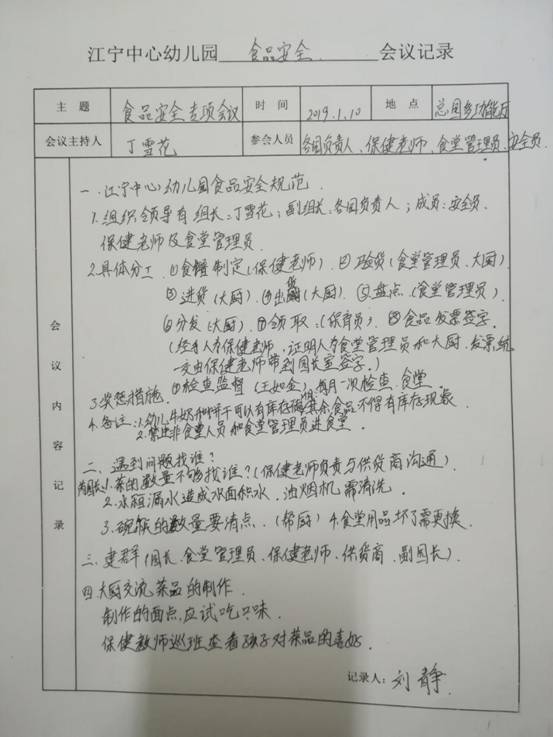 江宁中心幼儿园 食品安全 会议记录
主题 食品安全专项会议 时间 2019.1.10 地点 总园多功能厅
会议主持人 丁雪花 参会人员 各园负责人、保健老师、食堂管理员、安全员.
会议内容记录
一.江宁中心幼儿园食品安全规范.
1.组织领导有 组长:丁雪花;副组长:各园负责人;成员:安全员.
保健老师及食堂管理员.
2.具体分工 ①食谱制定(保健老师).②验货(食堂管理员.大厨)
③进货(大厨).④出货(大厨).⑤盘点(食堂管理员).
⑥分发(大厨).⑦领取:(保育员).⑧食品发票签字.
(经办人为保健老师.证明人为食堂管理员和大厨.发票统
一交由保健老师带到园长室签字.)
3.奖惩措施.①检查监督(王如金):每月一次检查.食堂.
4.备注:1.幼儿牛奶和饼干可以有库存 其余食品不得有库存现象
2.禁止非食堂人员和食堂管理员进食堂.
二、遇到问题找谁?
1.菜的数量不够找谁?(保健老师负责与供货商沟通)
2.冰箱漏水造成水面积水.油烟机需清洗.
3.碗筷的数量要清点.(帮厨)4.食堂用品坏了需更换.
三.建群(园长.食堂管理员.保健老师.供货商.副园长).
四.大厨交流菜品的制作.
制作的面点,应试吃口味.
保健教师巡班查看孩子对菜品的喜好.
记录人:刘静.